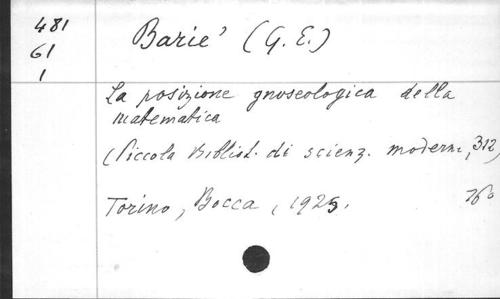 481
61
1
Barie' (G. E.)
La posizione gnoseologica della
matematica
(Piccola Bibliot. di scienz. moderne, 312)
Torino, Bocca, 1925.
16°